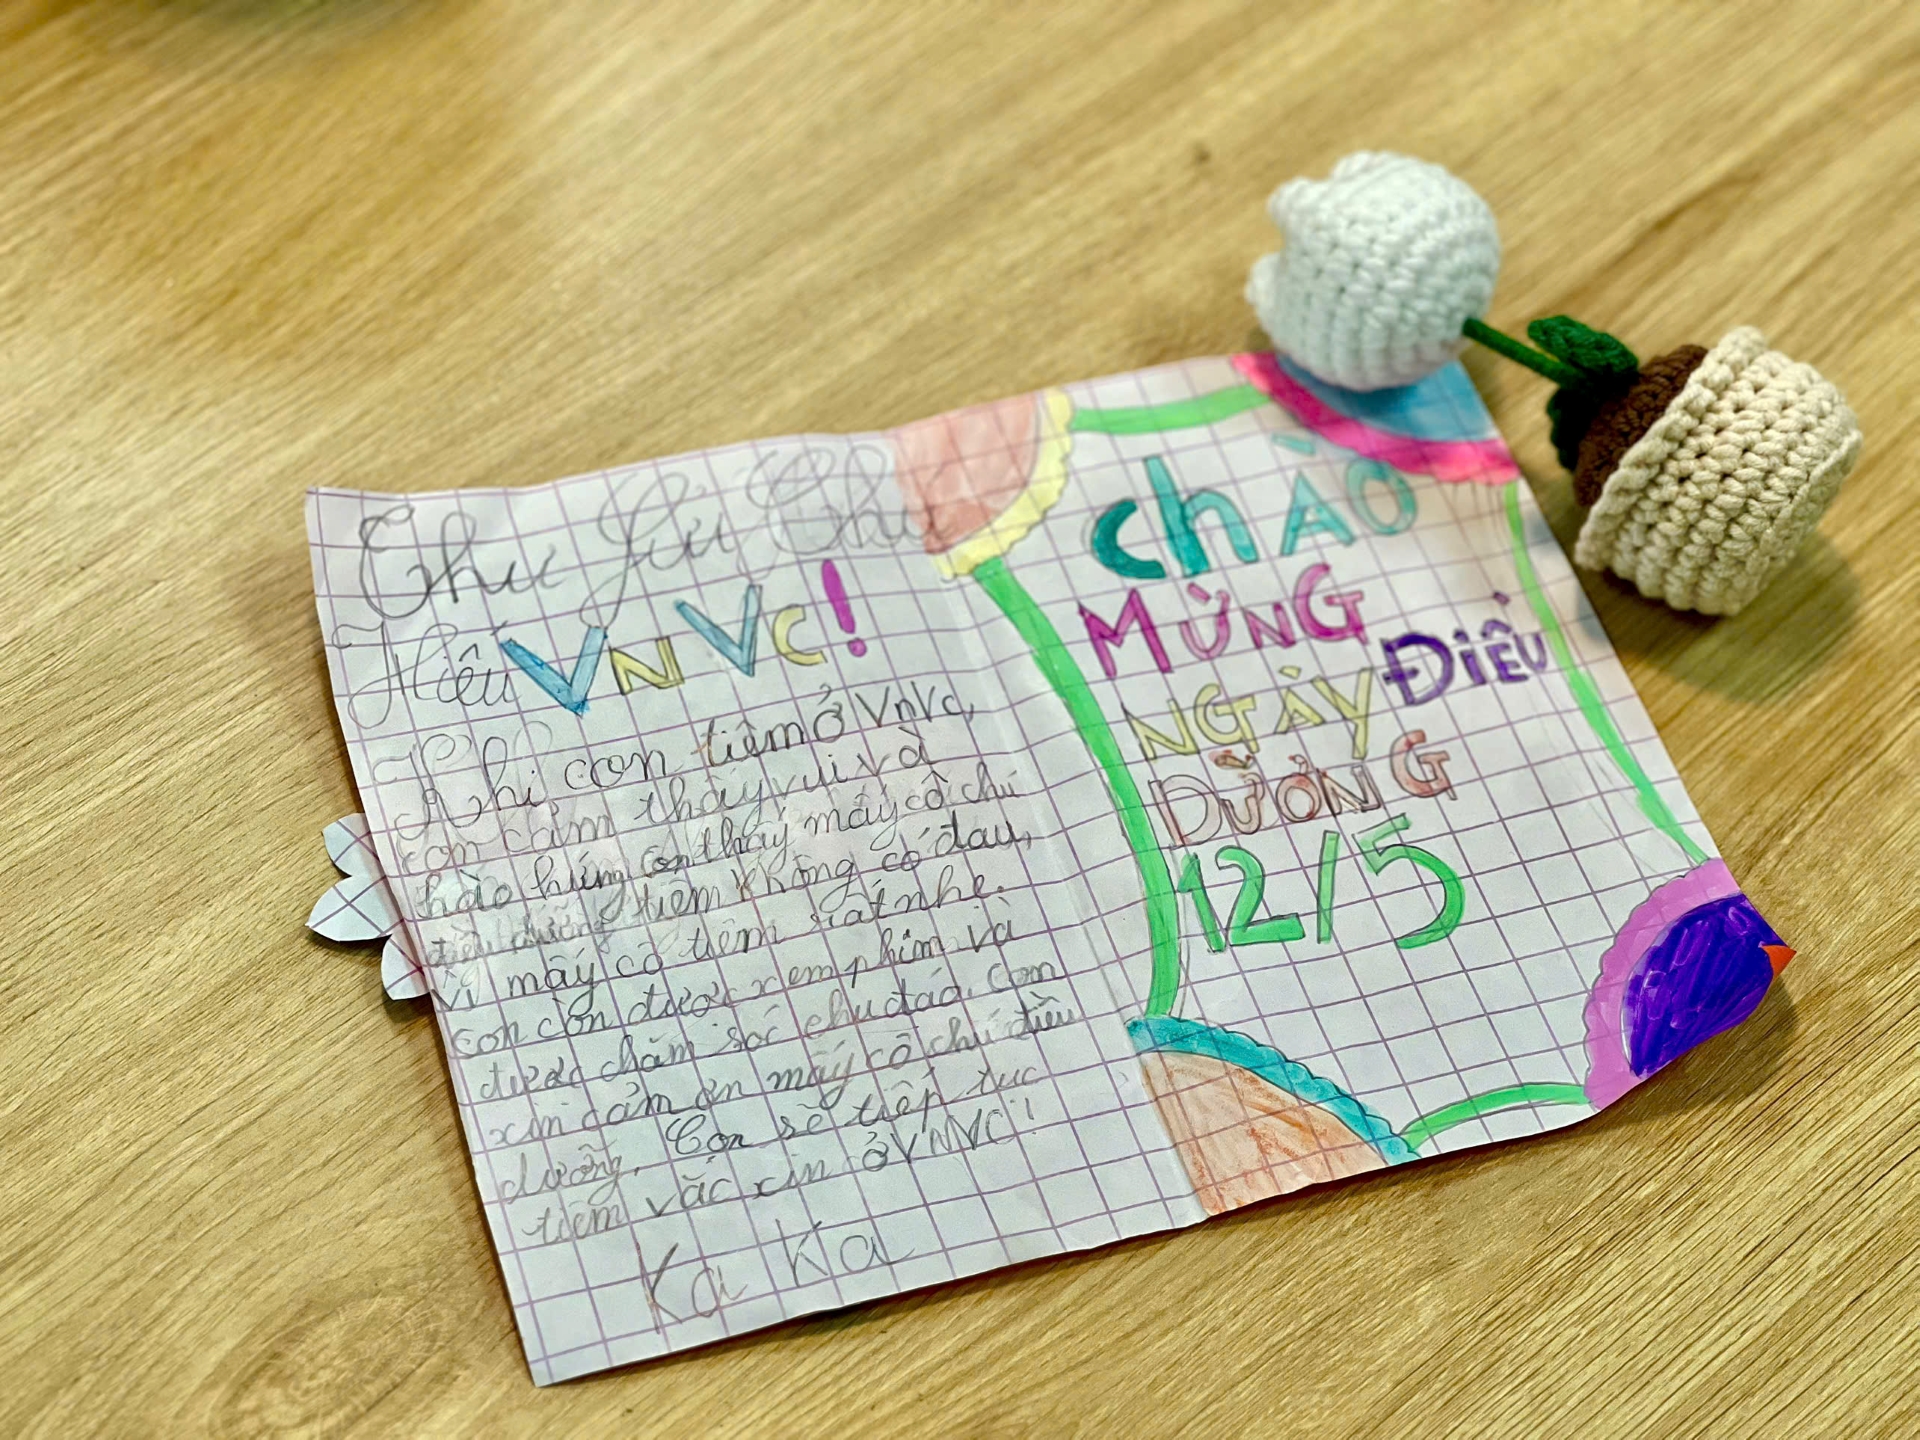 Thư Gửi Chú
Hiếu VNVC!
Khi con tiêm ở VNVC,
con cảm thấy vui và
hào hứng con thấy mấy cô chú
điều dưỡng tiêm không có đau,
vì mấy cô tiêm rất nhẹ.
con còn được xem phim và
được chăm sóc chu đáo. Con
xin cảm ơn mấy cô chú điều
dưỡng. Con sẽ tiếp tục
tiêm vắc xin ở VNVC!
Ka Ka
CHÀO
MỪNG
NGÀY ĐIỀU
DƯỠNG
12/5